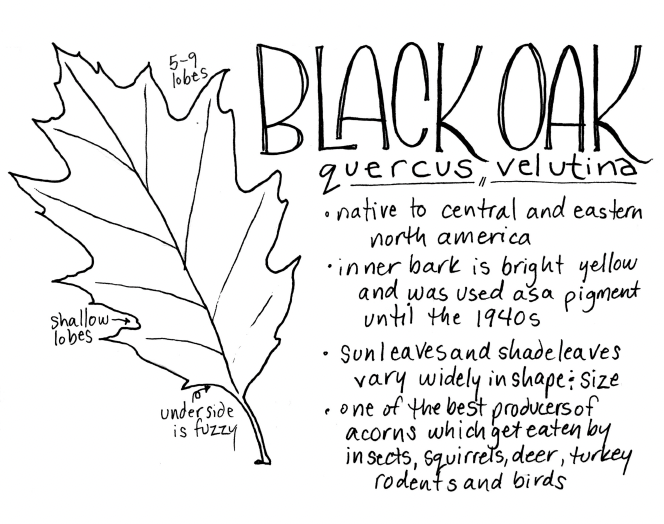 5-9
lobes
BLACK OAK
quercus velutina
• native to central and eastern
north america
• inner bark is bright yellow
and was used as a pigment
until the 1940s
shallow →
lobes
• sun leaves and shade leaves
vary widely in shape & size
• one of the best producers of
acorns which get eaten by
insects, squirrels, deer, turkey
rodents and birds
underside
is fuzzy